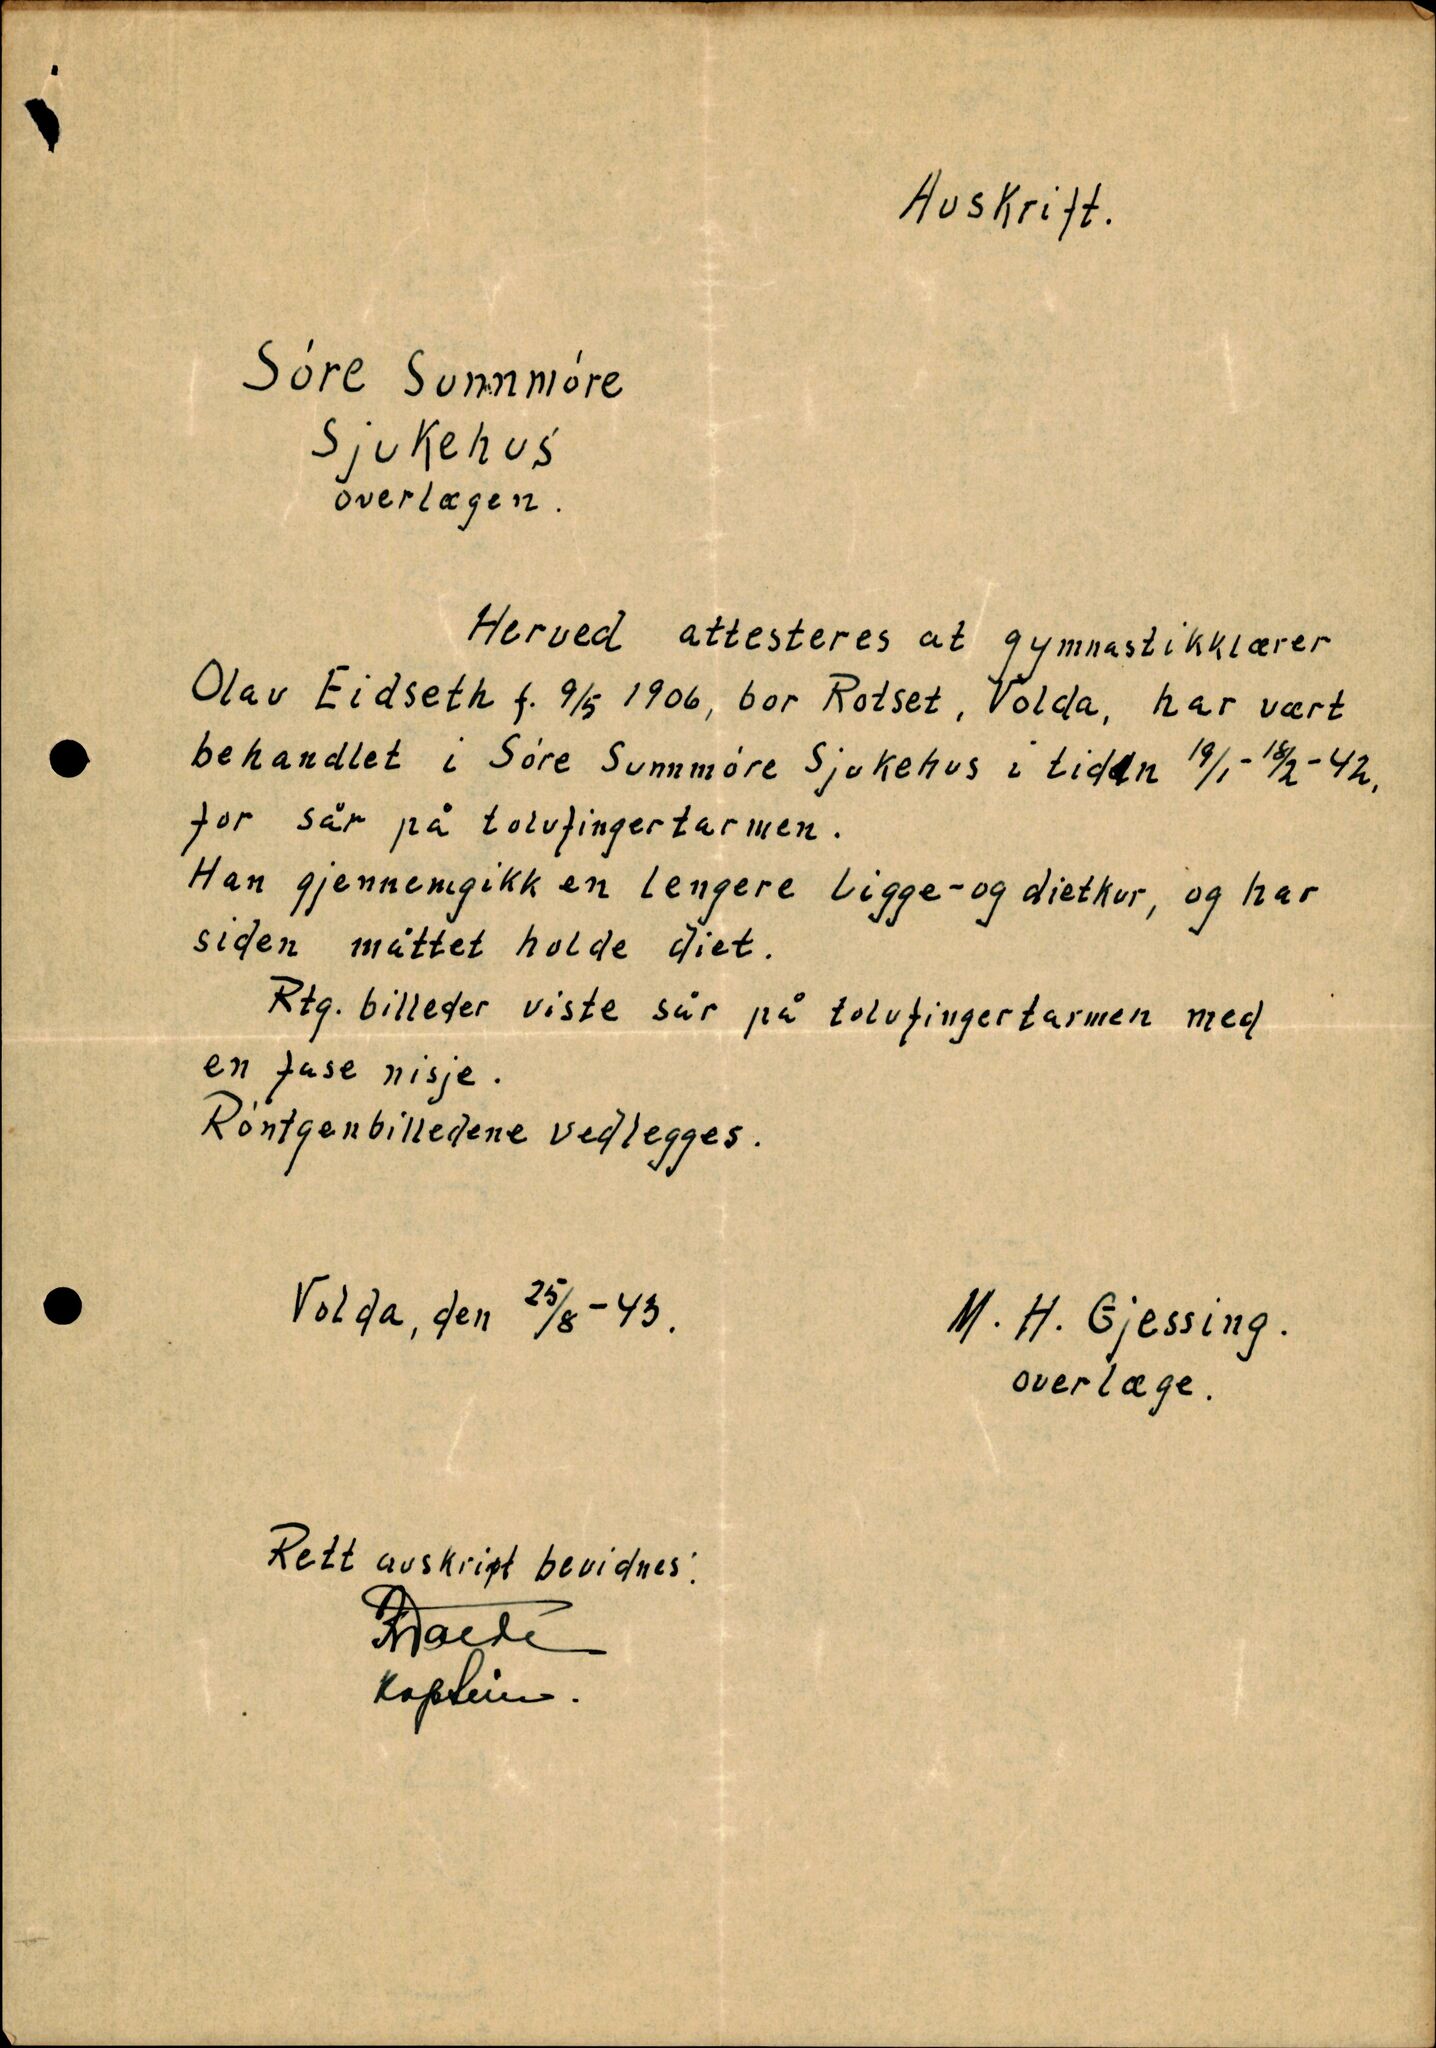 Avskrift.
Søre Sunnmøre
Sjukehus
overlægen.
Herved attesteres at gymnastikklærer
Olav Eidseth f. 9/5 1906, bor Rotset, Volda, har vært
behandlet i Søre Sunnmøre Sjukehus i tiden 19/1-18/2-42,
for sår på tolvfingertarmen.
Han gjennemgikk en lengere ligge-og dietkur, og har
siden måttet holde diet.
Rtg. billeder viste sår på tolvfingertarmen med
en fase nisje.
Röntgenbilledene vedlegges.
Volda, den 25/8-43.
M. H. Gjessing.
overlæge.
Rett avskript bevidnes:
Kaptein.